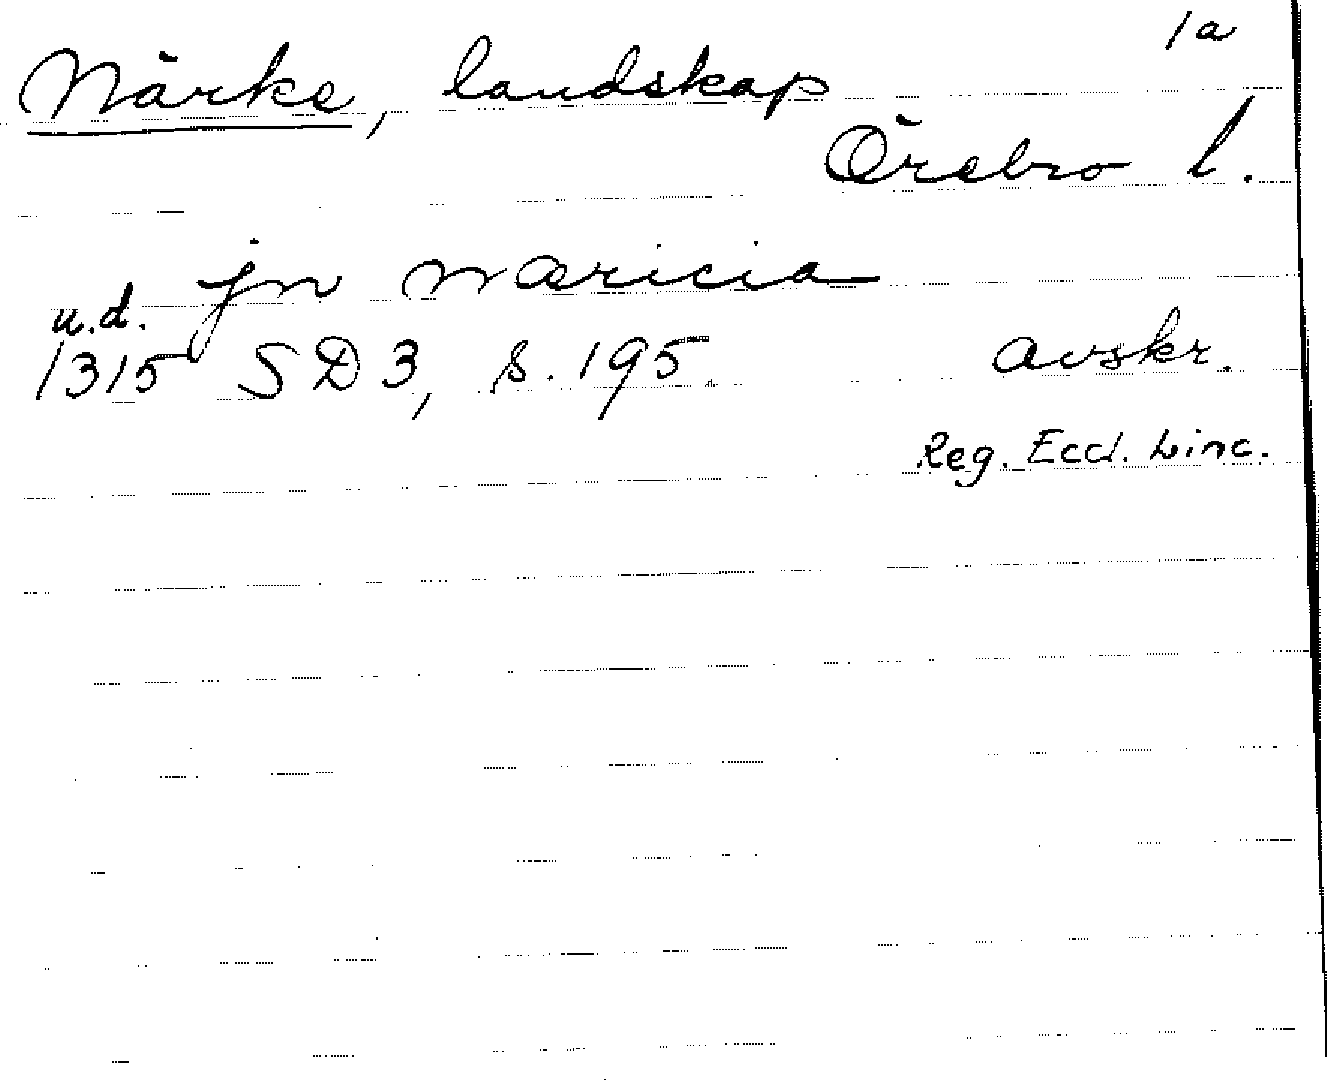 1a
Närke, landskap
Örebro l.
jn næricia
u.d.
1315 SD 3, s. 195 avskr.
Reg. Eccl. Linc.